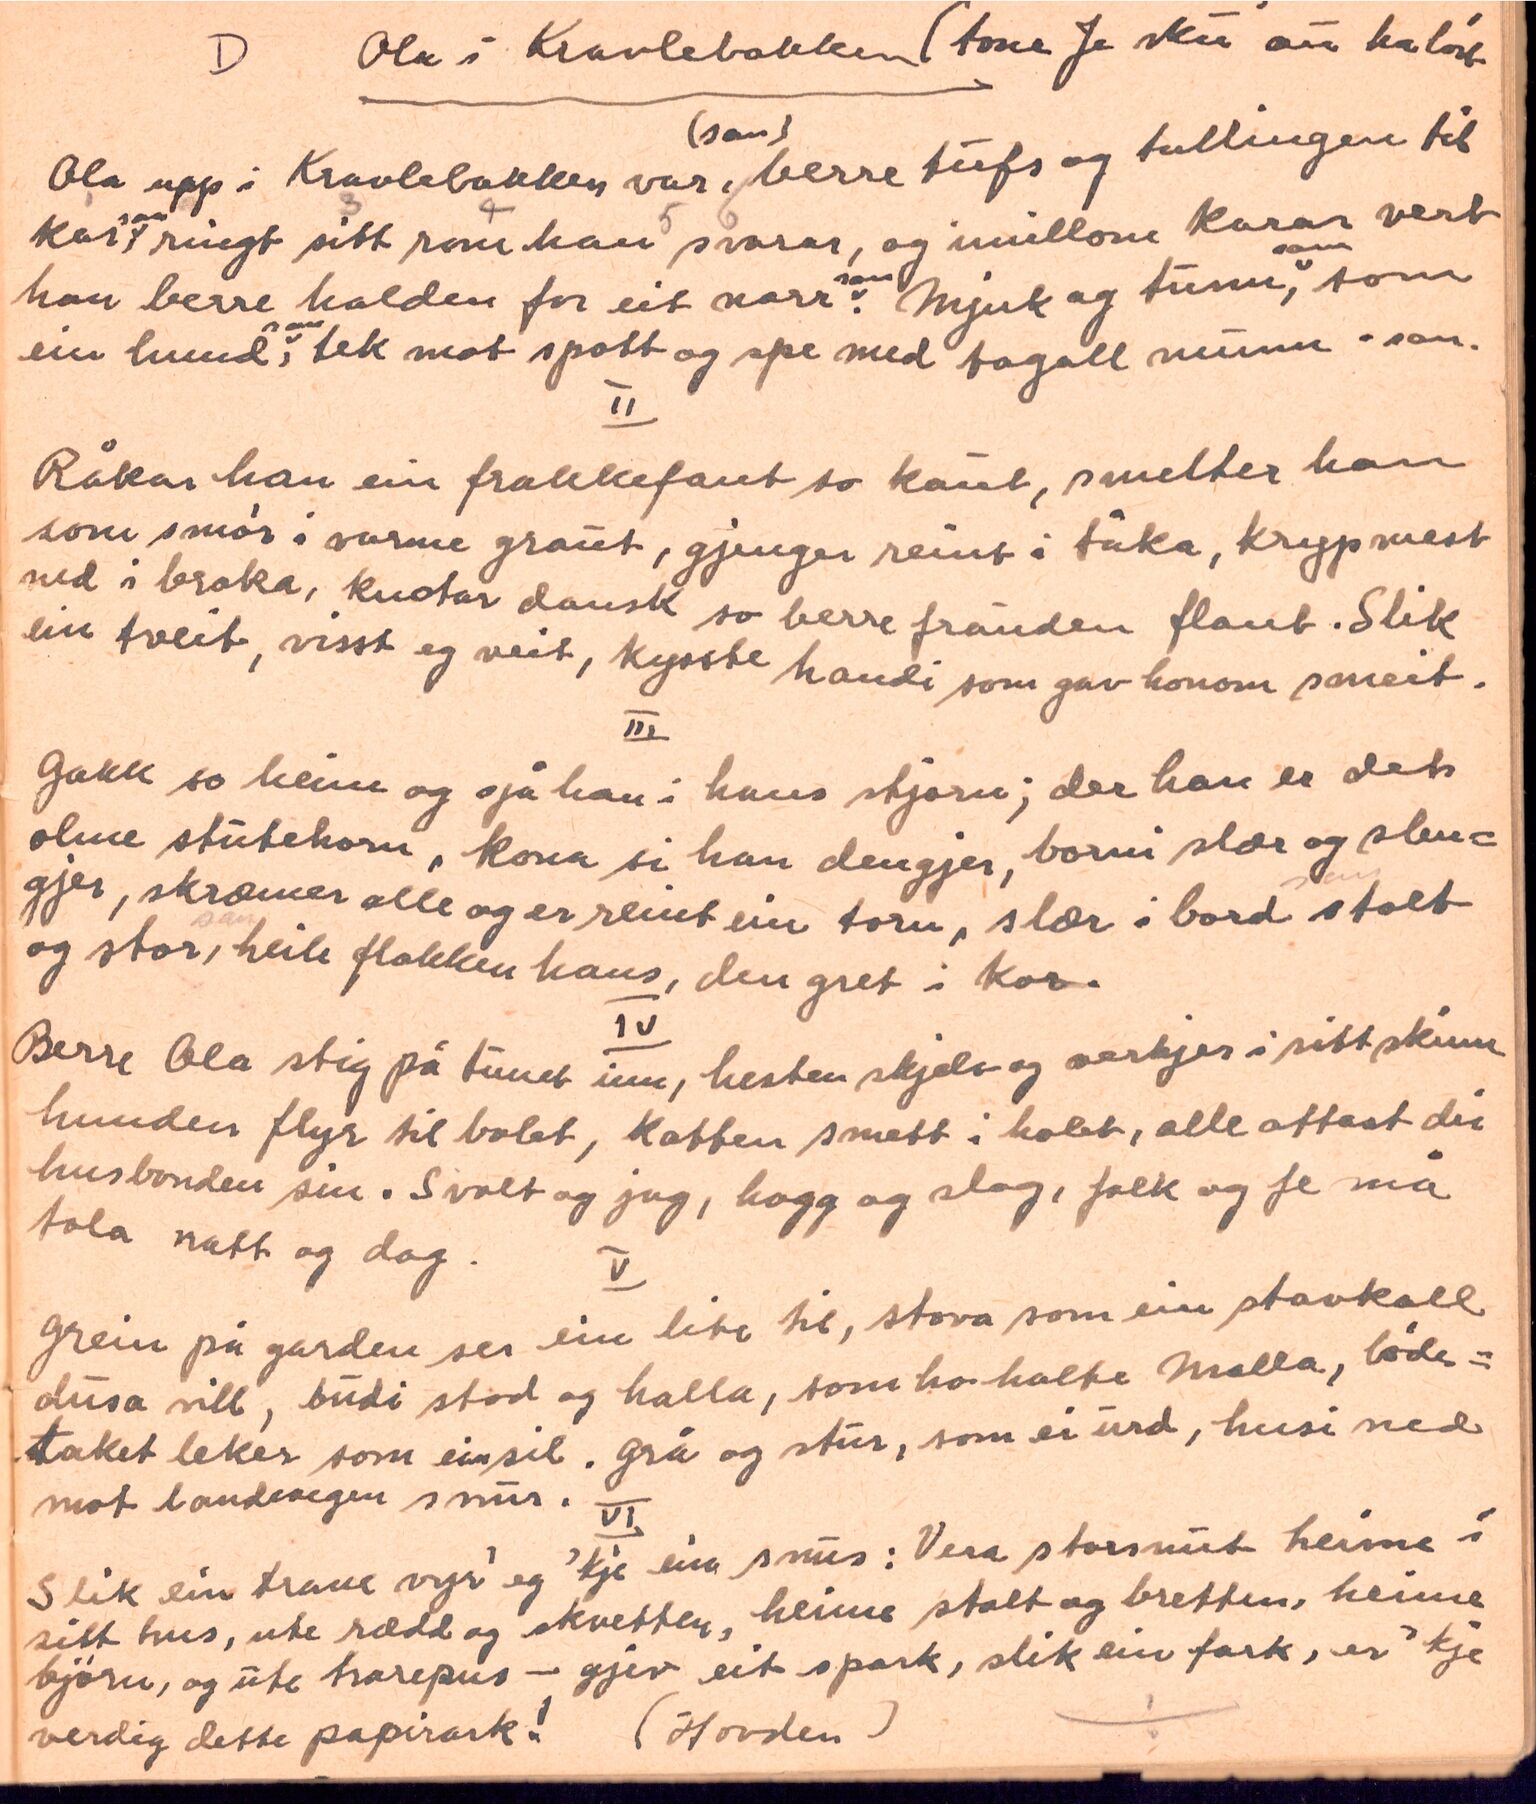 D Ola i Kravlebakken (tone Je sku au ha löst
(san)
Ola upp i Kravlebakken var, berre tufs og tullingen til
kar, san ringt sitt rom han svarar, og imillom karar vert
han berre halden for eit narr san. Mjuk og tunn, san som
ein hund, san tek mot spott og spe med togall munn - san.
II
Råkar han ein frakkefant so kaut, smelter han
som smör i varme graut, gjenger reint i tåka, kryp mest
ned i broka, knotar dansk so berre frauden flaut. Slik
ein tveit, visst eg veit, kysste handi som gav honom smeit.
III
Gakk so heim og sjå han i hans stjorn; der han er det
olme stutehorn, kona si han dengjer, borni slær og slen=
gjer, skræmer alle og er reint ein torn, slær i bord san stolt
og stor, san heile flokken hans, den gret i kor.
IV
Berre Ola stig på tunet inn, hesten skjelv og verkjer i sitt skinn
hunden flyr til bolet, katten smett i holet, alle ottast dei
husbonden sin. Svolt og jag, hogg og slag, folk og fe må
tola natt og dag.
V
Grein på garden ser ein lite til, stova som ein stavkall
dusa vill, budi stod og halla, som ho halte Malla, löde=
taket leker som ein sil. Grå og stur, som ei urd, husi ned
mot landevegen snur.
VI
Slik ein trave vyr' eg 'kje ein snus: Vera storsnut heime i
sitt hus, ute rædd og skvetten, heime stolt og bretten, heime
björn, og ute harepus - gjev eit spark, slik ein fark, er 'kje
verdig dette papirark! (Hovden)